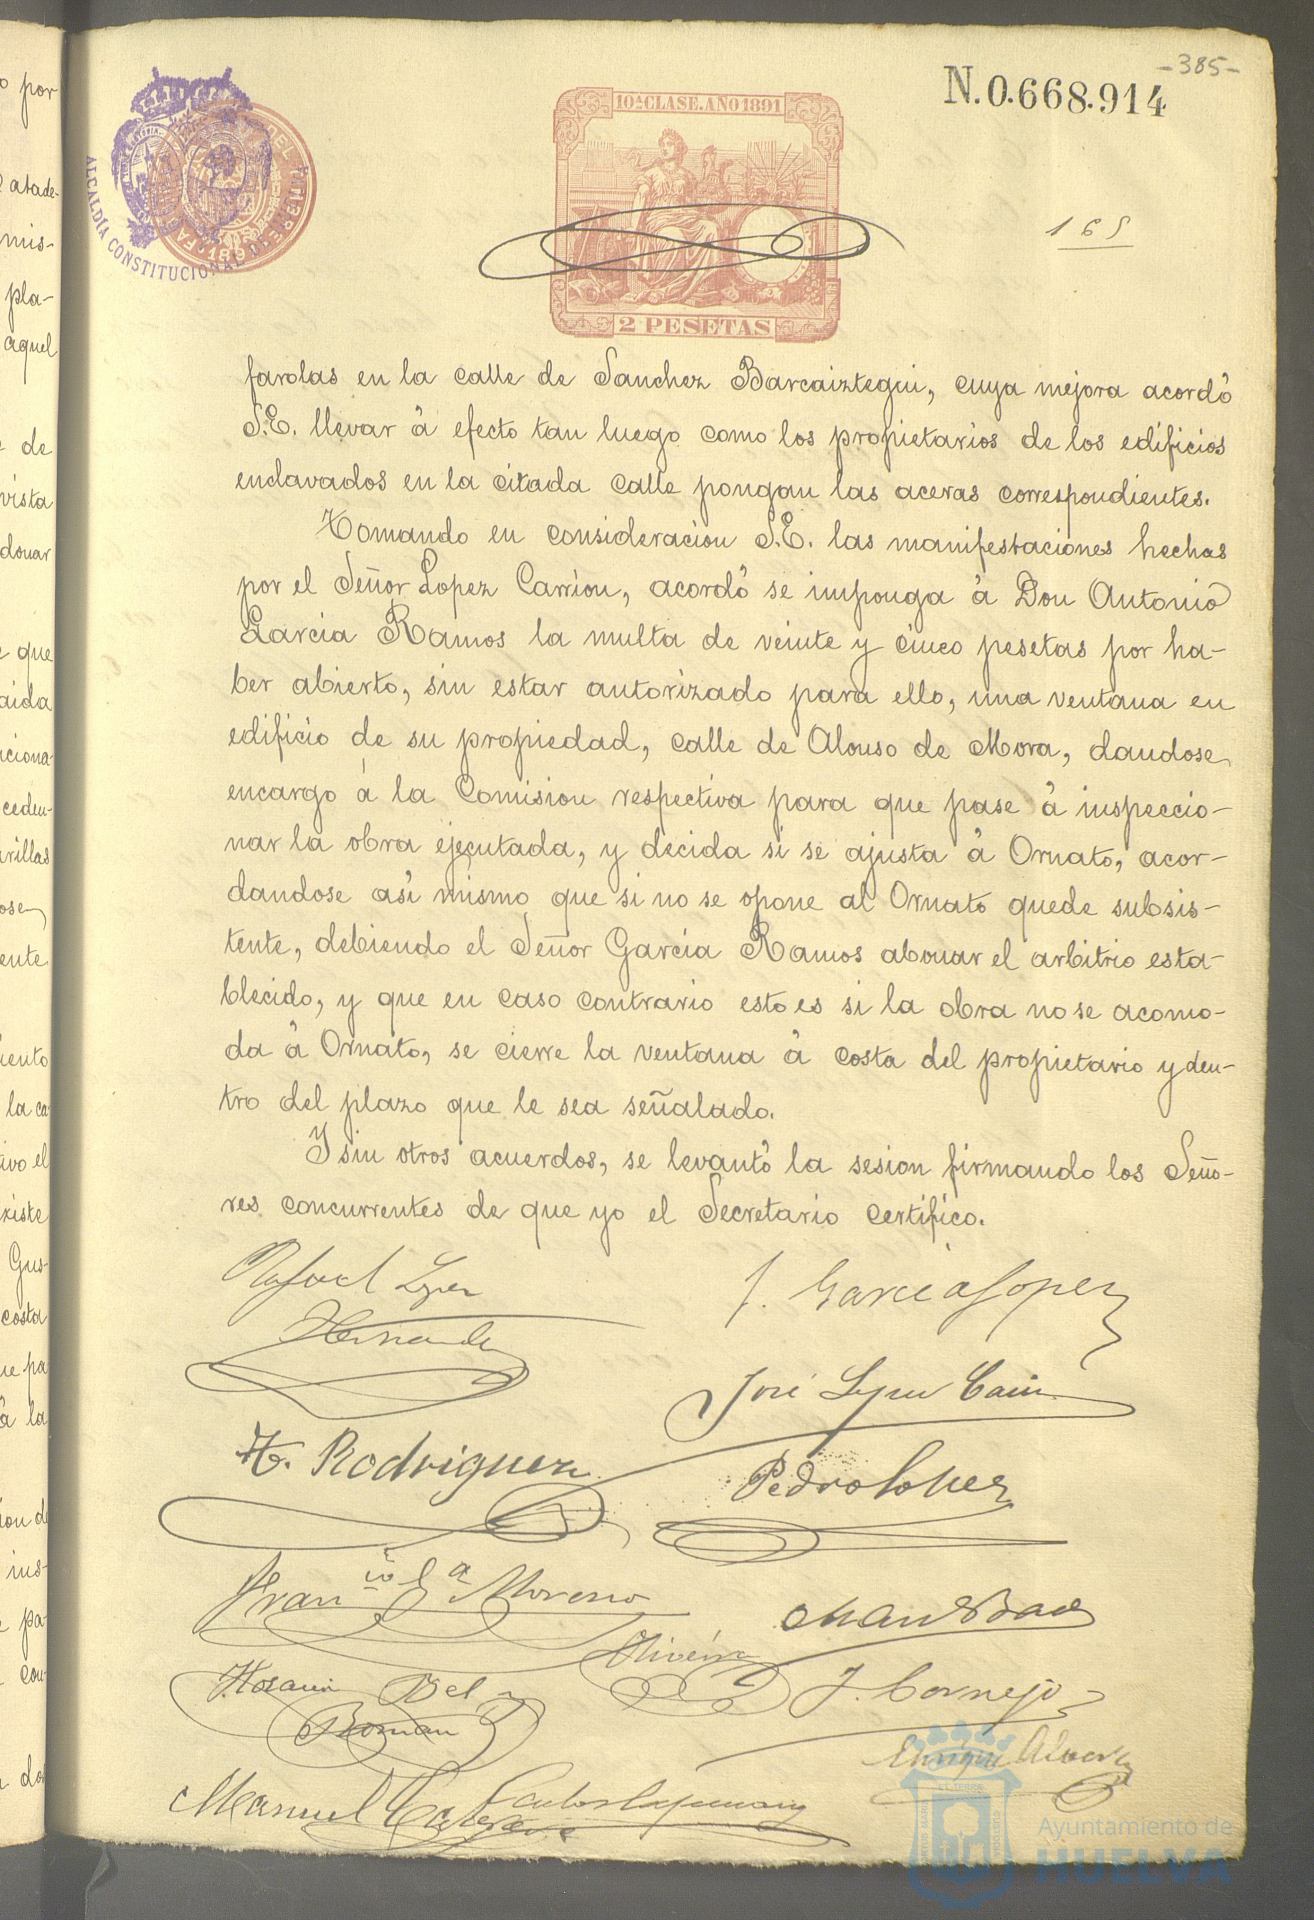 -385-
N.0.668.914
10ª CLASE. AÑO 1891
ALCALDÍA CONSTITUCIONAL DE
165
2 PESETAS
farolas en la calle de Sanchez Barcaiztegui, cuya mejora acordó
S.E. llevar á efecto tan luego como los propietarios de los edificios
enclavados en la citada calle pongan las aceras correspondientes.
Tomando en consideracion S.E. las manifestaciones hechas
por el Señor Lopez Carrion, acordó se imponga á Don Antonio
Garcia Ramos la multa de veinte y cinco pesetas por ha-
ber abierto, sin estar autorizado para ello, una ventana en
edificio de su propiedad, calle de Alonso de Mora, dandose
encargo á la Comision respectiva para que pase á inspeccio-
nar la obra ejecutada, y decida si se ajusta á Ornato, acor-
dandose así mismo que si no se opone al Ornato quede subsis-
tente, debiendo el Señor Garcia Ramos abonar el arbitrio esta-
blecido, y que en caso contrario esto es si la obra no se acomo-
da á Ornato, se cierre la ventana á costa del propietario y den-
tro del plazo que le sea señalado.
Y sin otros acuerdos, se levantó la sesion firmando los Seño-
res concurrentes de que yo el Secretario certifico.
Rafael Lopez
Hernandez
J. Garcia Lopez
José Lopez
H. Rodriguez
Pedro Lopez
Franco Moreno
Oliveira
J. Cornejo
Bel
Roman
Enrique
Manuel
Ayuntamiento de
HUELVA